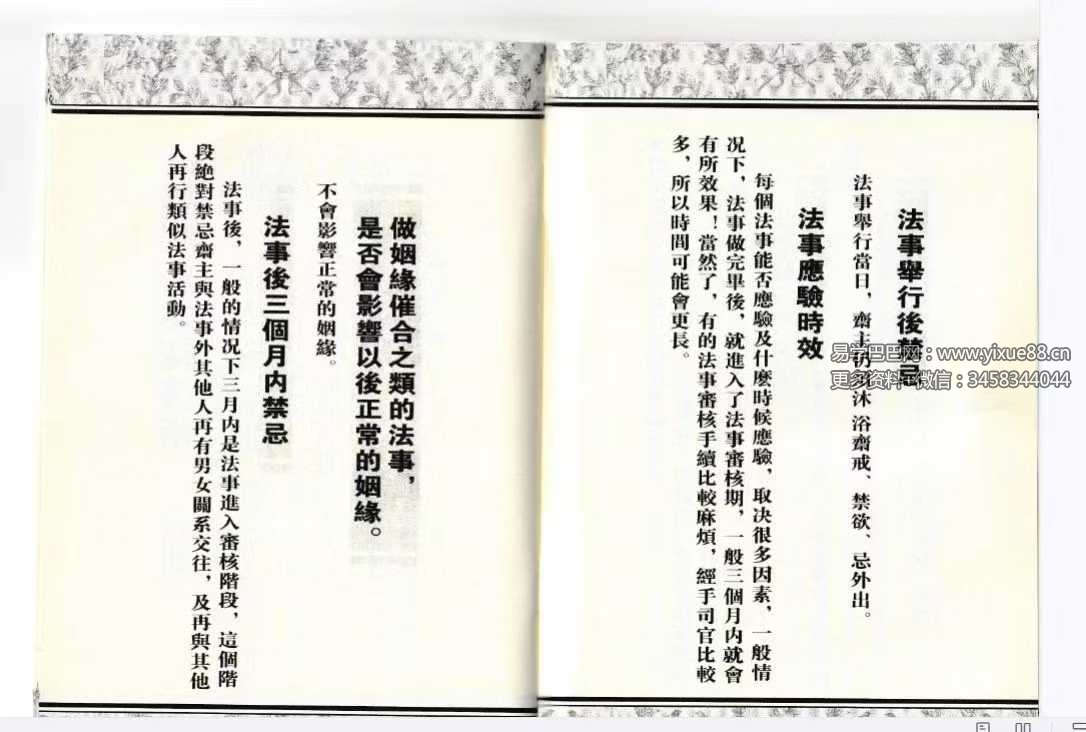 法事舉行後禁忌
法事舉行當日，齋主仍須沐浴齋戒、禁欲、忌外出。
法事應驗時效
每個法事能否應驗及什麼時候應驗，取决很多因素，一般情
况下，法事做完畢後，就進入了法事審核期，一般三個月内就會
有所效果！當然了，有的法事審核手續比較麻煩，經手司官比較
多，所以時間可能會更長。
做姻緣催合之類的法事，
是否會影響以後正常的姻緣。
不會影響正常的姻緣。
法事後三個月内禁忌
法事後，一般的情况下三月内是法事進入審核階段，這個階
段絶對禁忌齋主與法事外其他人再有男女關系交往，及再與其他
人再行類似法事活動。
易学巴巴网：www.yixue88.cn
更多资料+微信：3458344044